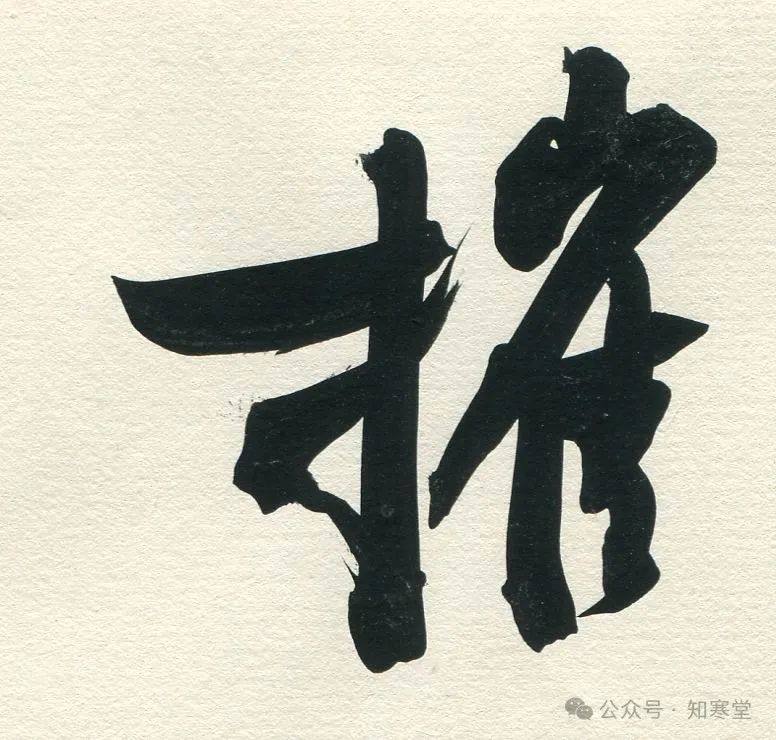 搉
公众号·知寒堂